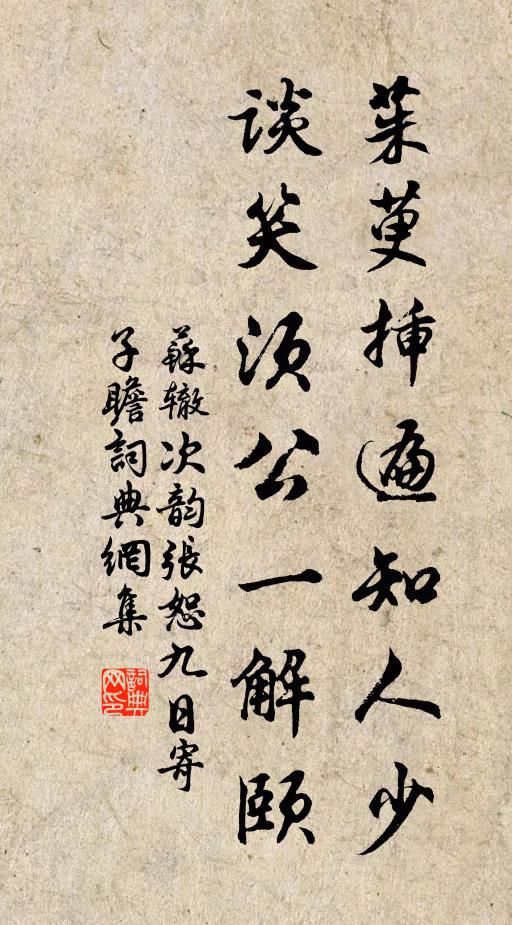 茱萸插遍知人少
谈笑须公一解颐
蘇辙次韵張恕九日寄
子瞻詞典網集
詞典網印